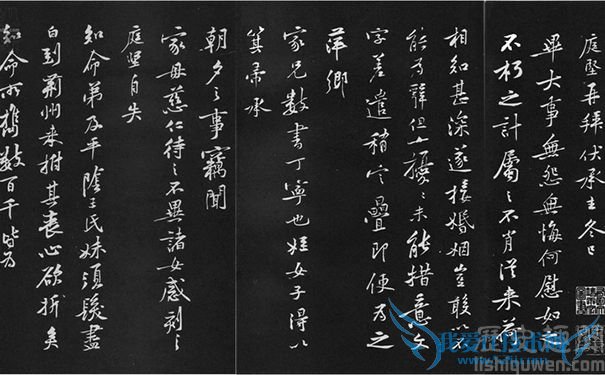 庭堅再拜伏承主冬日
畢大事無怨無悔何慰如之
不朽之計屬之不肖從來荷
相知甚深遂接婚姻豈敢以不
能為辭但以擾擾未能措意文
字差遣稍定疊即便為之
萍鄉
家兄數書丁寧也姪女子得以
箕帚承
朝夕之事竊聞
家母慈仁待之不異諸女感刻之
庭堅自失
知命弟及平陰王氏妹須髮盡
白到荊州來拊其喪心欲折矣
知命所攜數百千皆為
历史趣闻
lishiquwen.com